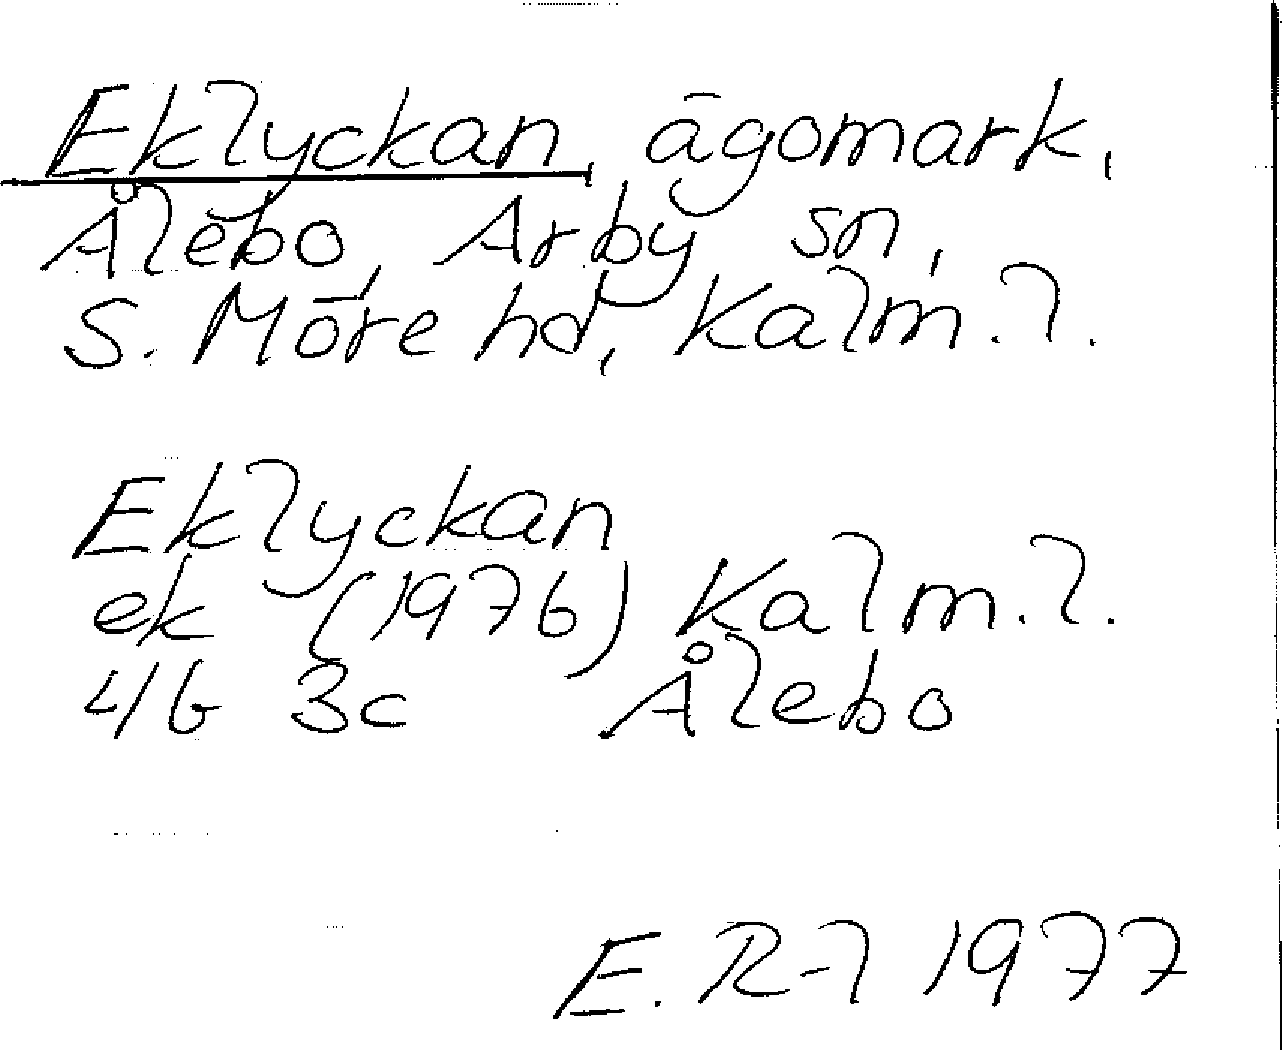 Eklyckan, ägomark,
Ålebo, Arby sn,
S. Möre hd, Kalm. l.
Eklyckan
ek (1976) Kalm. l.
4/6 3c Ålebo
E. R-l 1977